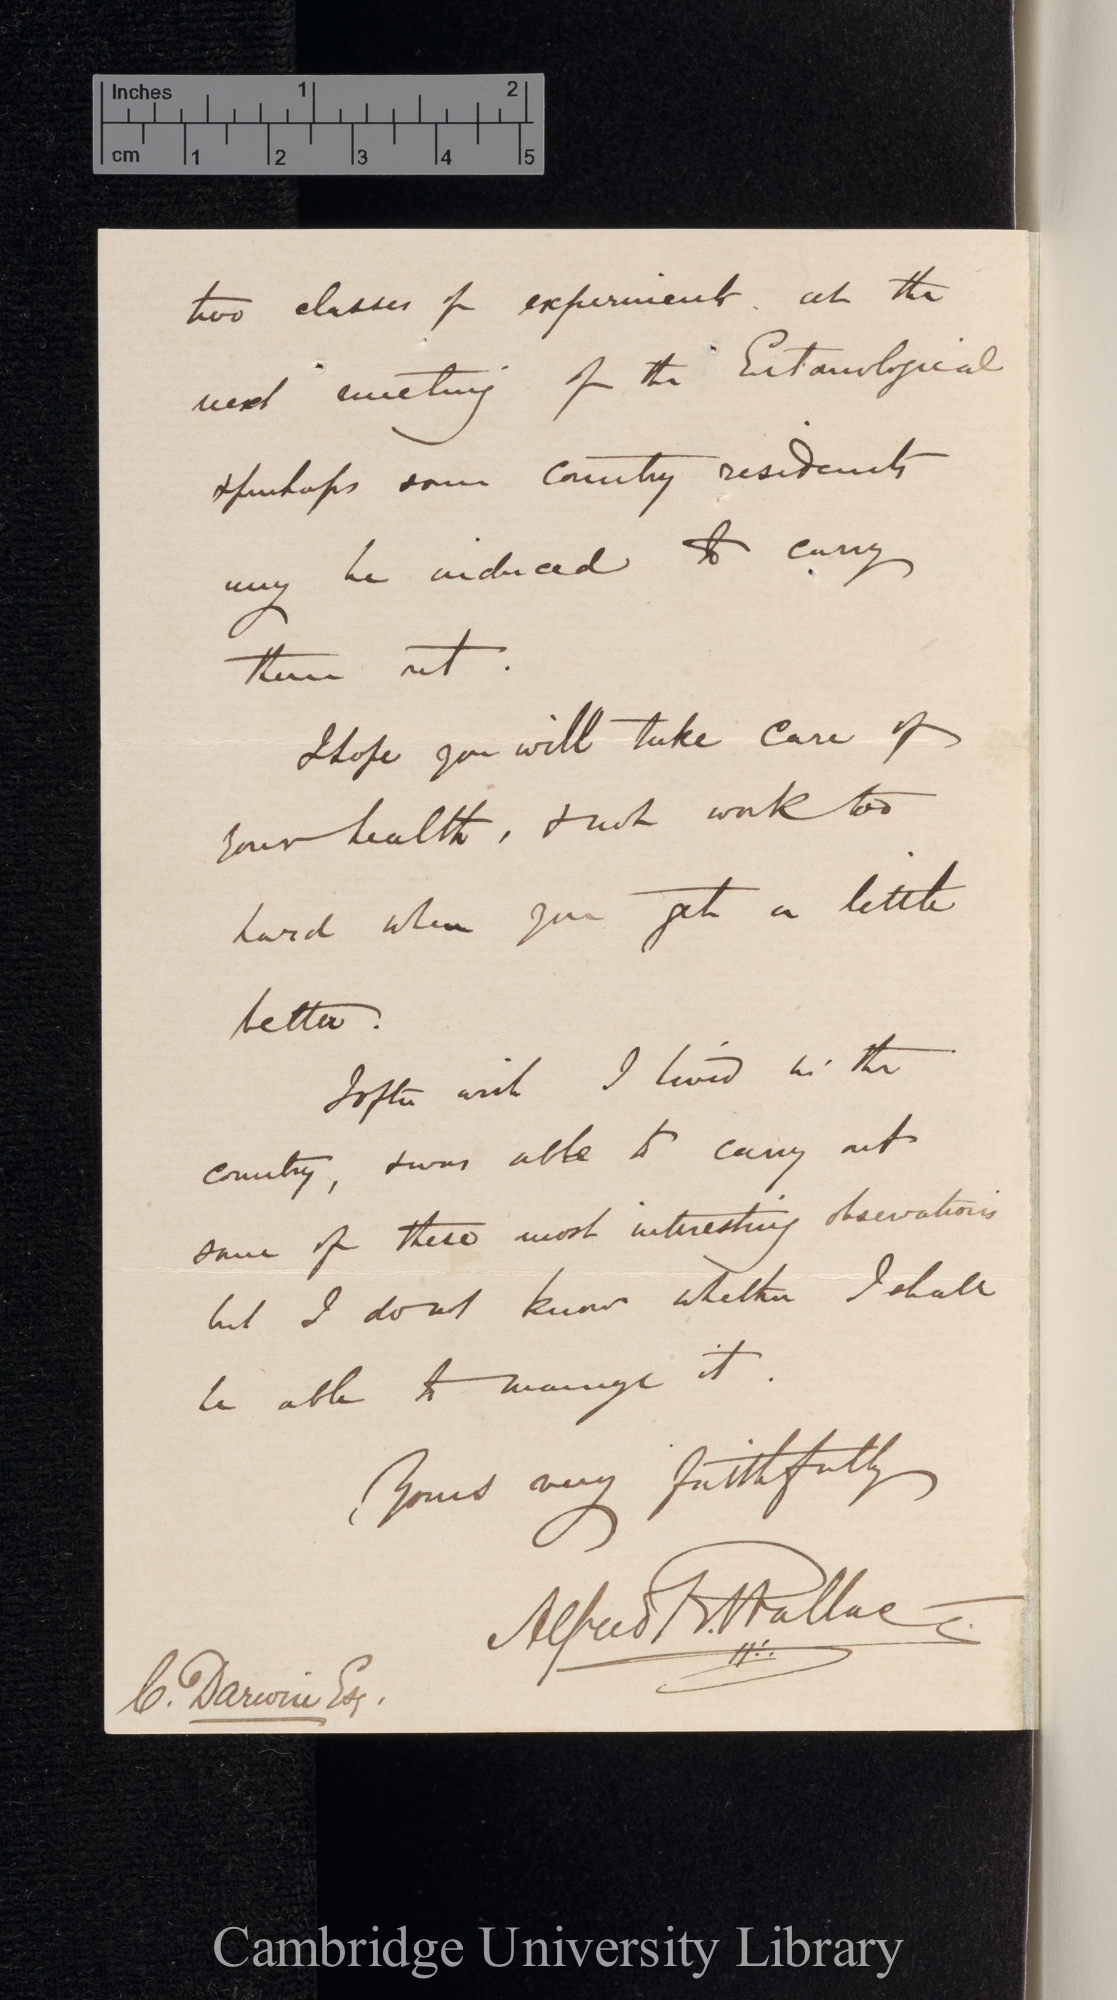 Inches 1 2
cm 1 2 3 4 5
two classes of experiments at the
next meeting of the Entomological
& perhaps some country residents
may be induced to carry
them out.
I hope you will take care of
your health, & not work too
hard when you get a little
better.
I often wish I lived in the
country, & was able to carry out
some of these most interesting observations
but I do not know whether I shall
be able to manage it.
Yours very faithfully
Alfred R. Wallace
C. Darwin Esq.
Cambridge University Library